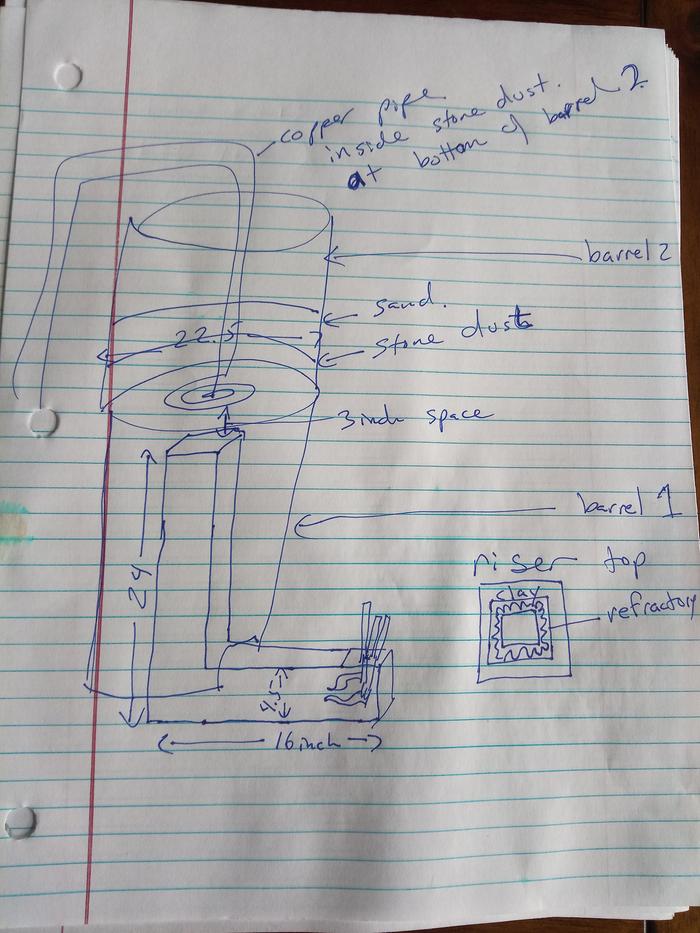 copper pipe
inside stone dust.
at bottom of barrel 2
barrel 2
sand.
22.5
stone dust
3inch space
barrel 1
24
riser top
clay
refractory
4.5
16inch